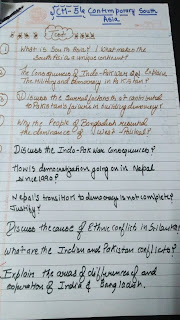 CH-5 Contemporary South
Asia
Test
① What is South Asia? What makes the
South Asia a unique continent?
② The Consequences of Indo-Pak War. Explain
The Military and Democracy in Pakistan?
③ Discuss the several factors have contributed
to Pakistan's failure in building democracy?
Why the People of Bangladesh resented
the dominance of West Pakistan?
Discuss the Indo-Pak War Consequences?
How is democratization going on in Nepal
since 1990?
Nepal's transition to democracy is not complete?
Justify?
Discuss the cause of Ethnic conflict in Sri Lanka
What are the Indian and Pakistan conflicts?
Explain the areas of differences of and
cooperation of India & Bangladesh.